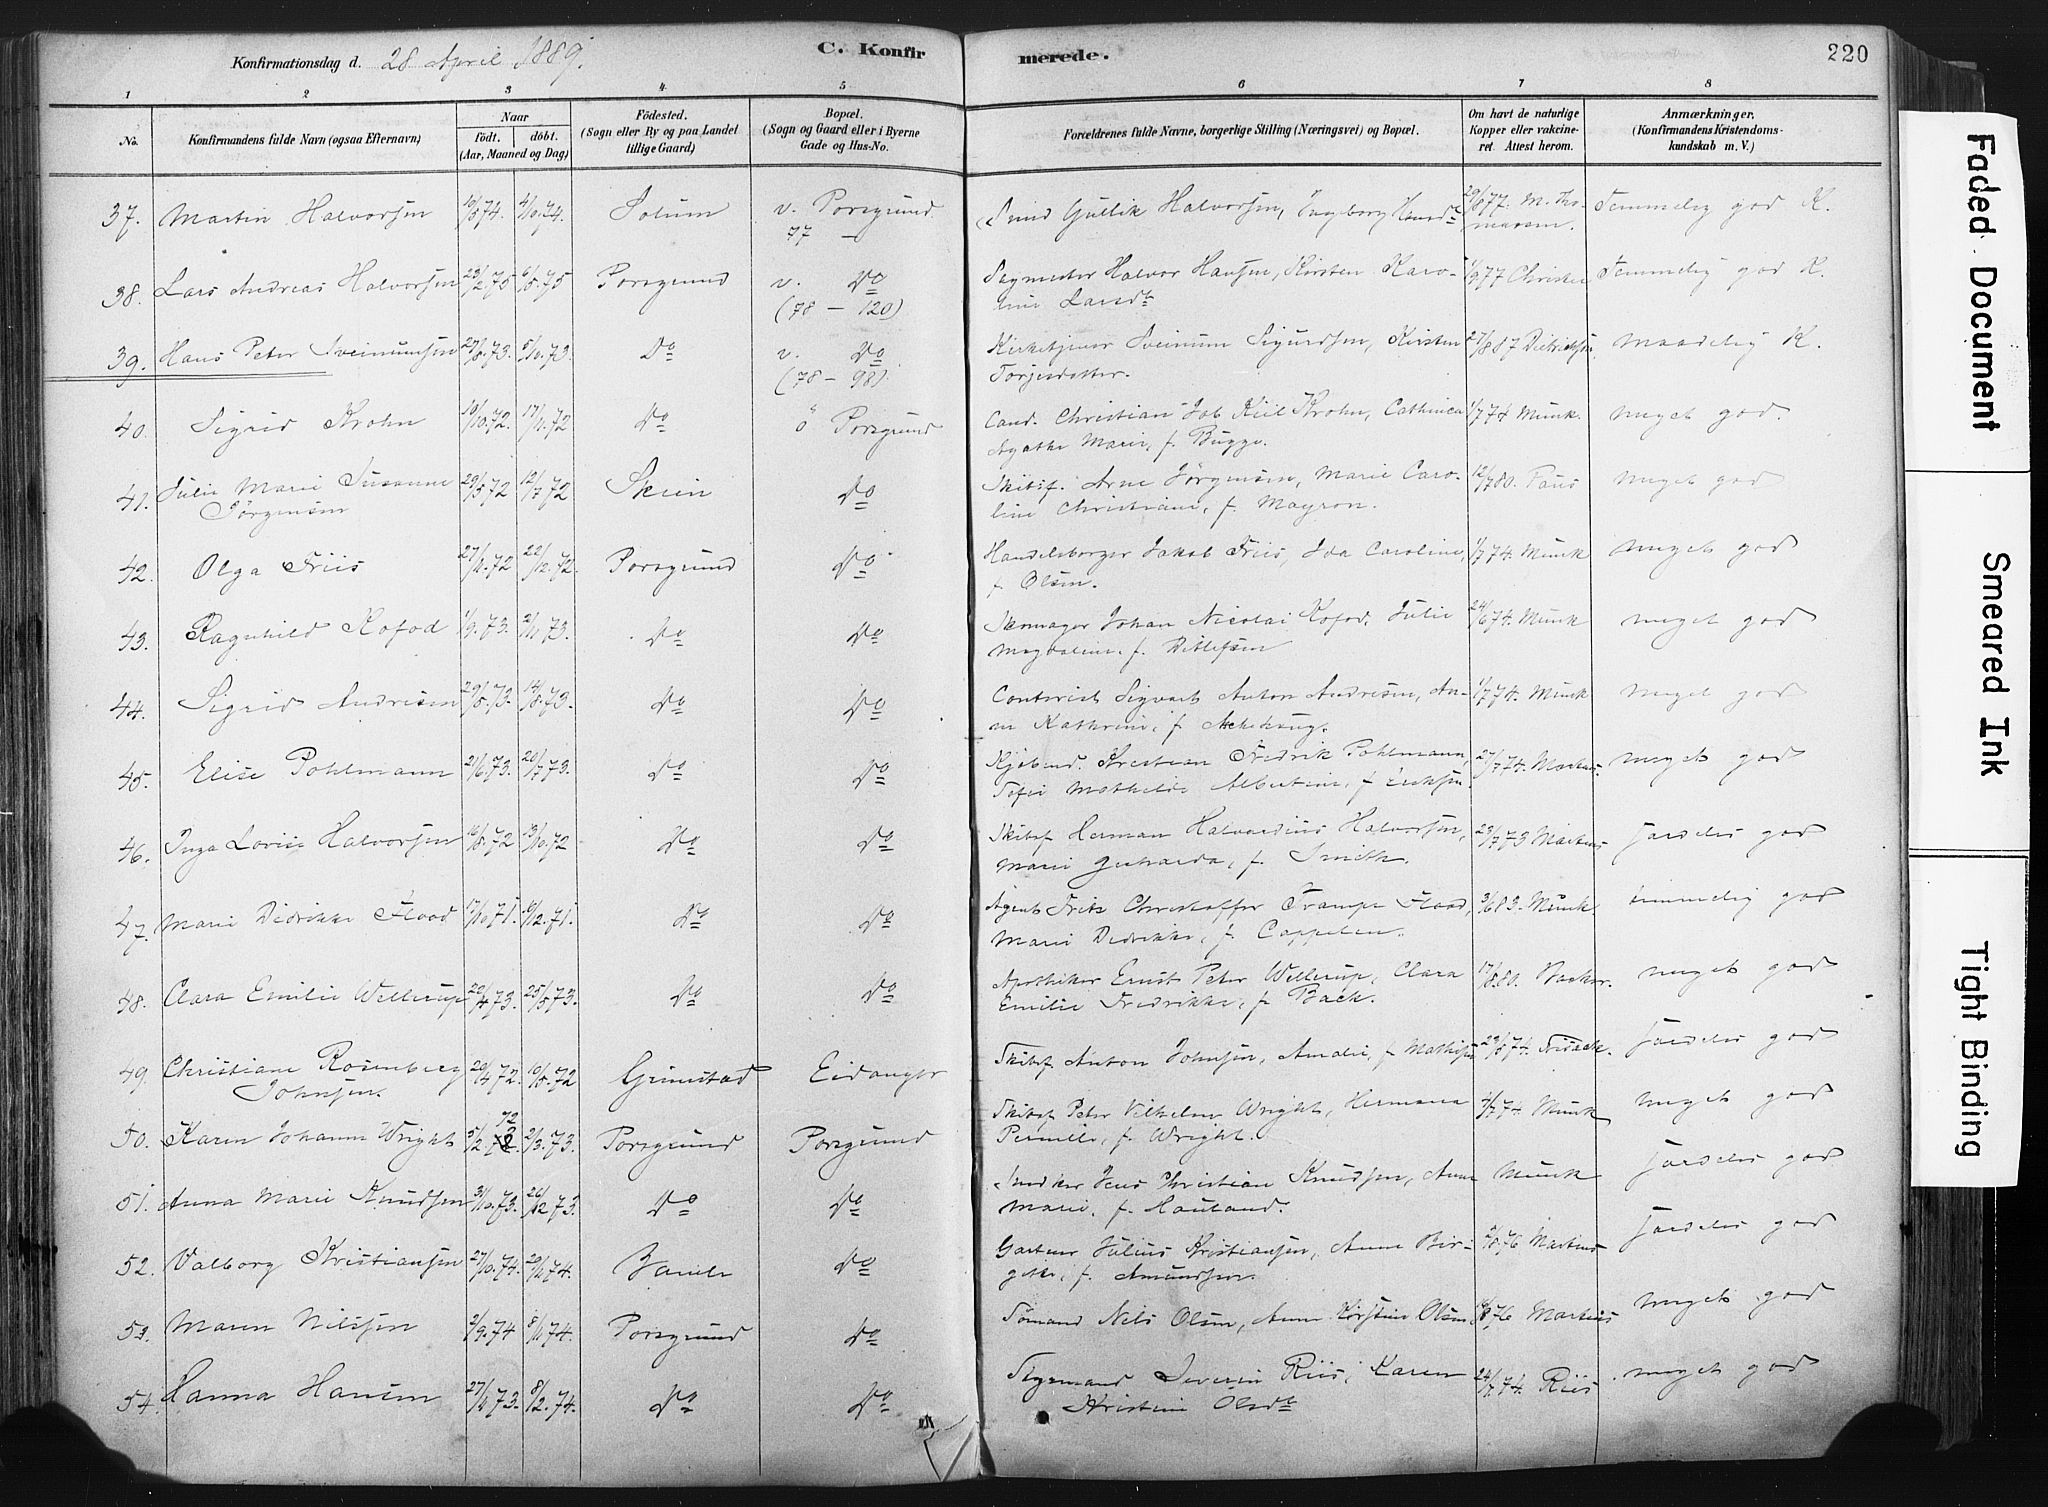 Konfirmationsdag d. 28 April 1889.
C. Konfirmerede.
220
1 2 3 4 5 6 7 8
No.
Konfirmandens fulde Navn (ogsaa Efternavn)
Naar
født. døbt.
(Aar, Maaned og Dag)
Fødested.
(Sogn eller By og paa Landet
tillige Gaard.)
Bopæl.
(Sogn og Gaard eller i Byerne
Gade og Hus-No.
Forældrenes fulde Navne, borgerlige Stilling (Næringsvei) og Bopæl.
Om havt de naturlige
Kopper eller vakcine-
ret. Attest herom.
Anmærkninger,
(Konfirmandens Kristendoms-
kundskab m. V.)
37. Martin Halvorsen 4/10.74. Solum v. Porsgrund 77 — Smed Gullik Halvorsen, Ingeborg 29/8 77. M. Tho-
masen. Temmelig god K.
38. Lars Andreas Halvorsen 23/2.75 6/5.75 Porsgrund v. Do (78 — 120) Sagmester Halvor Hansen, Kirsten Karo-
line Larsd. 1/9 77 Temmelig god K.
39. Hans Peter Sveinunsen 5/10.73. Do v. Do (78 — 98) Kirketjener Sveinum Sigurdsen, Kirsten
Torjesdatter. 27/8 87 Dietrichsen maadelig K.
40. Sigrid Krohn 19/10.72. 17/11.72 Do ö Porsgrund Cand. Christian Job Kiil Krohn, Cathinca
Agathe Marie, f. Bugge. 1/7 74 Munk. meget god.
41. Julie Marie Susanne
Jörgensen 29/5 72 12/7 72 Skien Do Skibsf. Arne Jörgensen, Marie Caro-
line Christiane, f. Mayron. 12/7 80. Paus meget god
42. Olga Friis 27/11.72 22/12.72. Porsgrund Do Handelsborger Jakob Friis, Ida Caroline,
f. Olsen. 1/7 74 Munk meget god
43. Ragnhild Kofod 1/9.73. 2/11.73. Do Do Skomager Johan Nicolai Kofod, Julie
Magdalene, f. Ditlefsen 24/6 74. Munk meget god
44. Sigrid Andresen 29/5.73. 14/8.73. Do Do Contorist Sigvart Anton Andresen, An-
ne Kathrine, f. 1/7 74. Munk meget god
45. Elise Pohlmann 21/6.73. 20/7 73. Do Do Kjøbmd. Krestian Fredrik Pohlmann,
Sofie Mathilde Albertine, f. Eriksen. 27/7 74. Martens. meget god
46. Inga Lovise Halvorsen 16/8.72 13/10.72 Do Do Skibsf Herman Halvardius Halvorsen,
Marie Gerharda, f. Smith. 23/7 73 Martens særdeles god
47. Marie Didrikke Flood 17/10.71. Do Do Agent Fritz Christoffer Trampe Flood,
Marie Didrikke, f. Cappelen. 3/6 83. Munk temmelig god
48. Clara Emilie Wellerup 20/4 73. 25/5 73. Do Do Apotheker Ernst Peter Wellerup, Clara
Emilie Fredrikke, f. Back. 17/8 80. Backer. meget god
49. Christiane Rosenberg
Johnsen. 20/4 72. 10/5.72 Grimstad Eidanger Skibsf Anton Johnsen, Amalie, f Mathisen særdeles god
50. Karen Johanne Wright 5/12.72 2/3.73. Porsgrund Porsgrund Skibsf Peter Vilhelm Wright, Hermana
Pernille, f. Wright. 1/7 74. Munk meget god
51. Anna Marie Knudsen 31/10.73. 26/12 73. Do Do Snedker Jens Christian Knudsen, Anne
Marie, f. Hauland. Munk særdeles god
52. Valborg Kristiansen 27/10.74. 29/11 74. Do Gartner Julius Kristiansen, Anne Bir-
gitte, f. Amundsen. Martens særdeles god
53. Maren Nilsen 2/9.74 8/11 74. Porsgrund Do Sømand Nels Olsen, Anne Kirstine Olsen. Martens meget god
54. Hanna Hansen 27/11 73. 8/2.74. Do Do Severin Riis, Karen
Kristine Olsd. 24/7 74. Riis meget god
Faded Document
Smeared Ink
Tight Binding